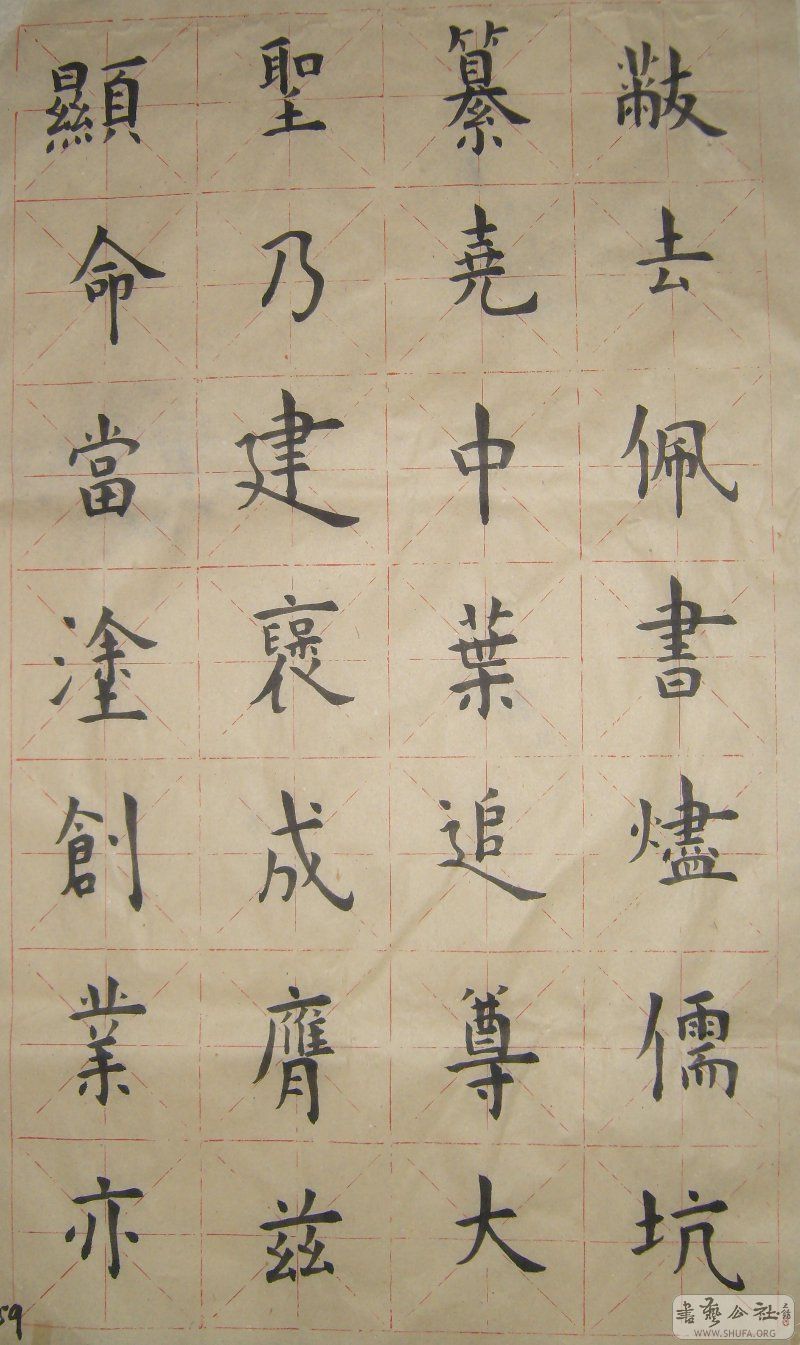 黻去佩書燼儒坑
纂堯中葉追尊大
聖乃建褒成膺茲
顯命當塗創業亦
59
書藝公社
WWW.SHUFA.ORG